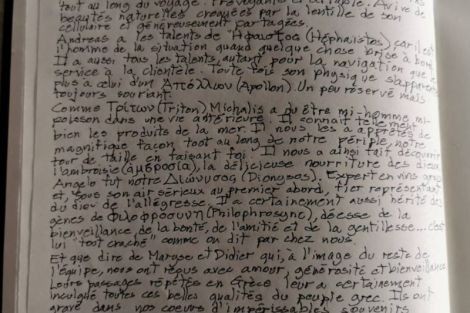 tout au long du voyage.
beautés naturelles croquées par la lentille de son
cellulaire et généreusement partagées.
Andreas a les talents de Ἥφαιστος (Héphaïstos) car il est
l'homme de la situation quand quelque chose brise à bord.
Il a aussi tous les talents, autant pour la navigation que le
service à la clientèle. Toute fois son physique s'apparente
plus à celui d'un Ἀπόλλων (Apollon). Un peu réservé mais
toujours souriant.
Comme Τρίτων (Triton) Michalis a du être mi-homme, mi-
poisson dans une vie antérieure. Il connait tellement
bien les produits de la mer. Il nous les a apprêtés de
magnifique façon, tout au long de notre périple, notre
tour de taille en faisant foi. Il nous a ainsi fait découvrir
l'ambroisie (ἀμβροσία), la délicieuse nourriture des dieux.
Angelo fut notre Διώνυσος (Dionysos). Expert en vins grecs
et, sous son air sérieux au premier abord, fier représentant
du dieu de l'allégresse. Il a certainement aussi hérité des
gènes de Φιλοφροσύνη (Philophrosyne), déesse de la
bienveillance, de la bonté, de l'amitié et de la gentillesse... c'est
lui "tout craché" comme on dit par chez nous.
Et que dire de Maryse et Didier qui, à l'image du reste de
l'équipe, nous ont reçus avec amour, générosité et bienveillance.
Leurs passages répétés en Grèce leur a certainement
inculqué toutes ces belles qualités du peuple grec. Ils ont
gravé dans nos coeurs d'impérissables souvenirs